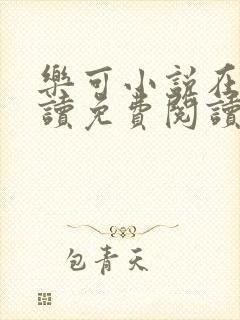 樂可小說在
讀免費閱讀
包青天